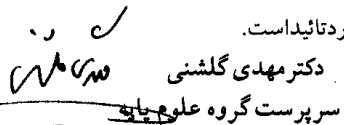 ردتائیداست.
دکتر مهدی گلشنی
سرپرست گروه علوم پایه